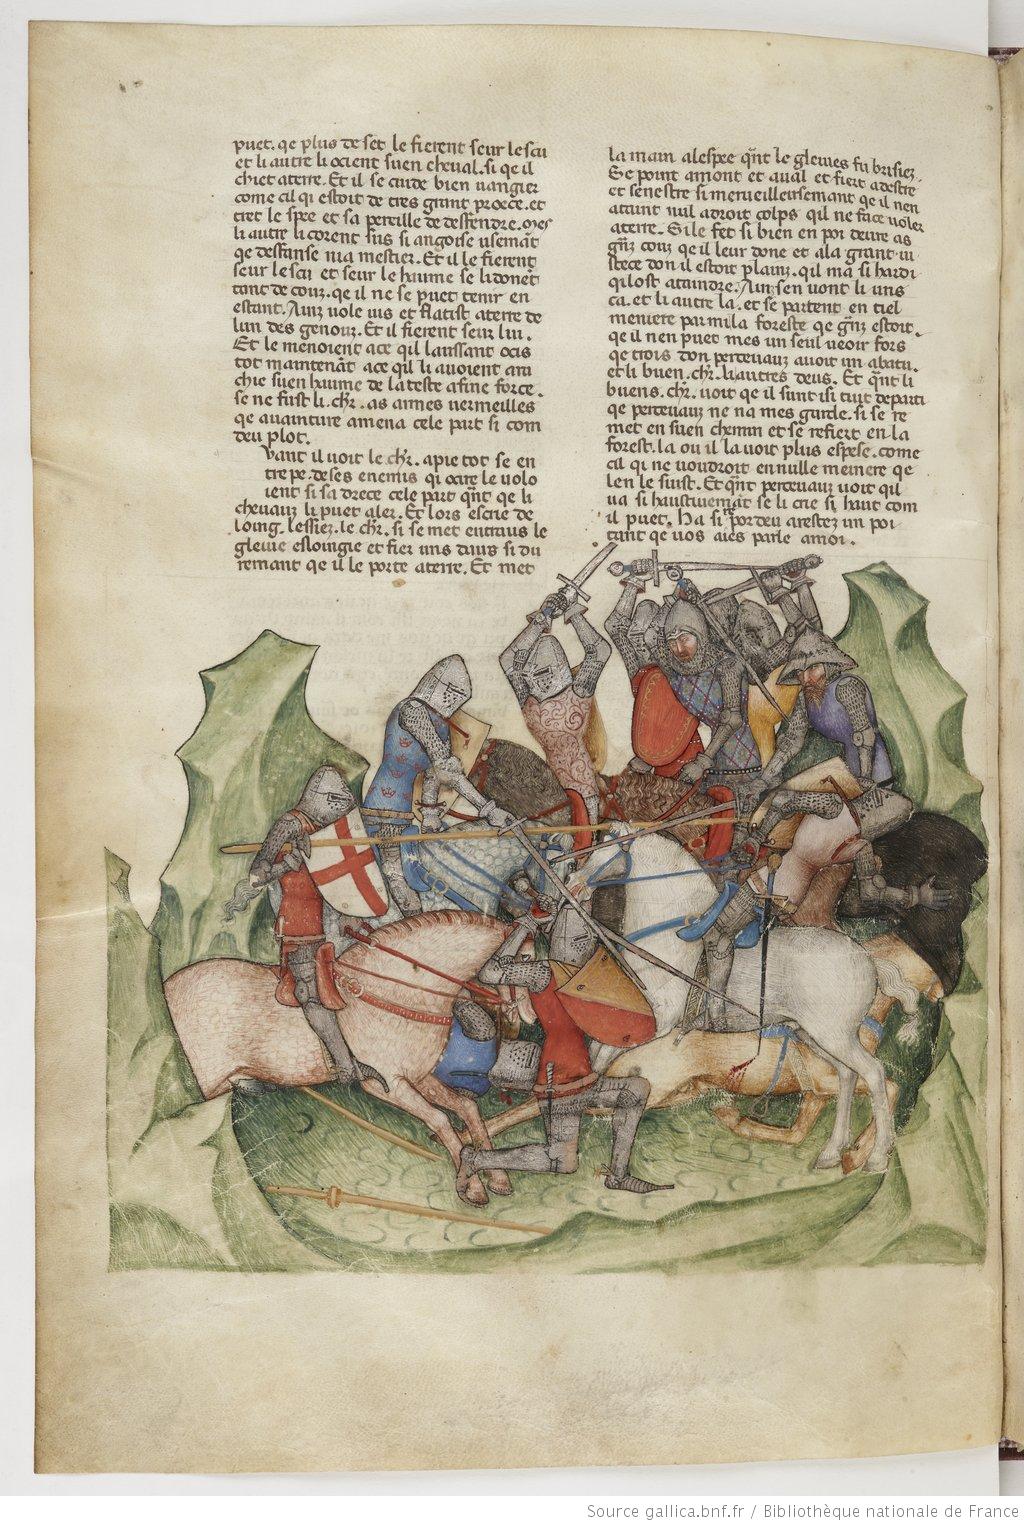 puet. qe plus de set le fierent seur lescu
et li autre li ocient suen cheval. si qe il
chiet aterre. Et il se cuide bien uangier
come cil qi estoit de tres grant proece. et
tret le spee et sa pereille de deffendre. Mes
li autre li corent sus si angoise usemāt
qe deffanse ni a mestier. Et il le fierent
seur lescu et seur le hiaume se li donēt
tant de couz. qe il ne se puet tenir en
estant. Ainz uole ius et flatist aterre de
lun des genouz. Et il fierent seur lui.
Et le menoient ace qil laussant ocis
tot maintenāt ace qil li auoient arra
chie suen hiaume de la teste afine force.
se ne fust li. chr̄. as armes uermeilles
qe auainture amena cele part si com
deu plot.
Vant il uoit le chr̄. apie tot se en
tre pe. de ses enemis qi ocire le uolo
ient si sa drece cele part qn̄t qe li
cheuauz li puet aler. Et lors escrie de
loing. lessiez. le chr̄. si se met entraus le
gleuie esloingie et fier uns daus si du
remant qe il le porte aterre. Et met
la main alespee qn̄t le gleuies fu brisiez.
Se point amont et aual et fiert adestre
et senestre si merueilleusemant qe il nen
ataint nul adroit colps qil ne face uoler
aterre. Si le fet si bien en poi deure as
gn̄z couz qe il leur done et ala grant ui
stece don il estoit plainz. qil ni a si hardi
qil ost ataindre. Ainz sen uont li uns
ca. et li autre la. et se partent en tiel
meniere parmi la foreste qe gn̄z estoit.
qe il nen puet mes un seul ueoir fors
qe trois don perceuauz auoit un abatu.
et li buen. chr̄. li autres deus. Et qn̄t li
buens. chr̄. uoit qe il sunt isi tuit departi
qe perceuauz ne na mes garde. si se re
met en suen chemin et se refiert en la
forest. la ou il la uoit plus espese. come
cil qi ne uoudroit en nulle meinere qe
len le suist. Et qn̄t perceuauz uoit qil
ua si hastiuemāt se li crie si haut com
il puet. Ha sire por deu arestez un poi
tant qe uos aies parle amoi.
Source gallica.bnf.fr / Bibliothèque nationale de France